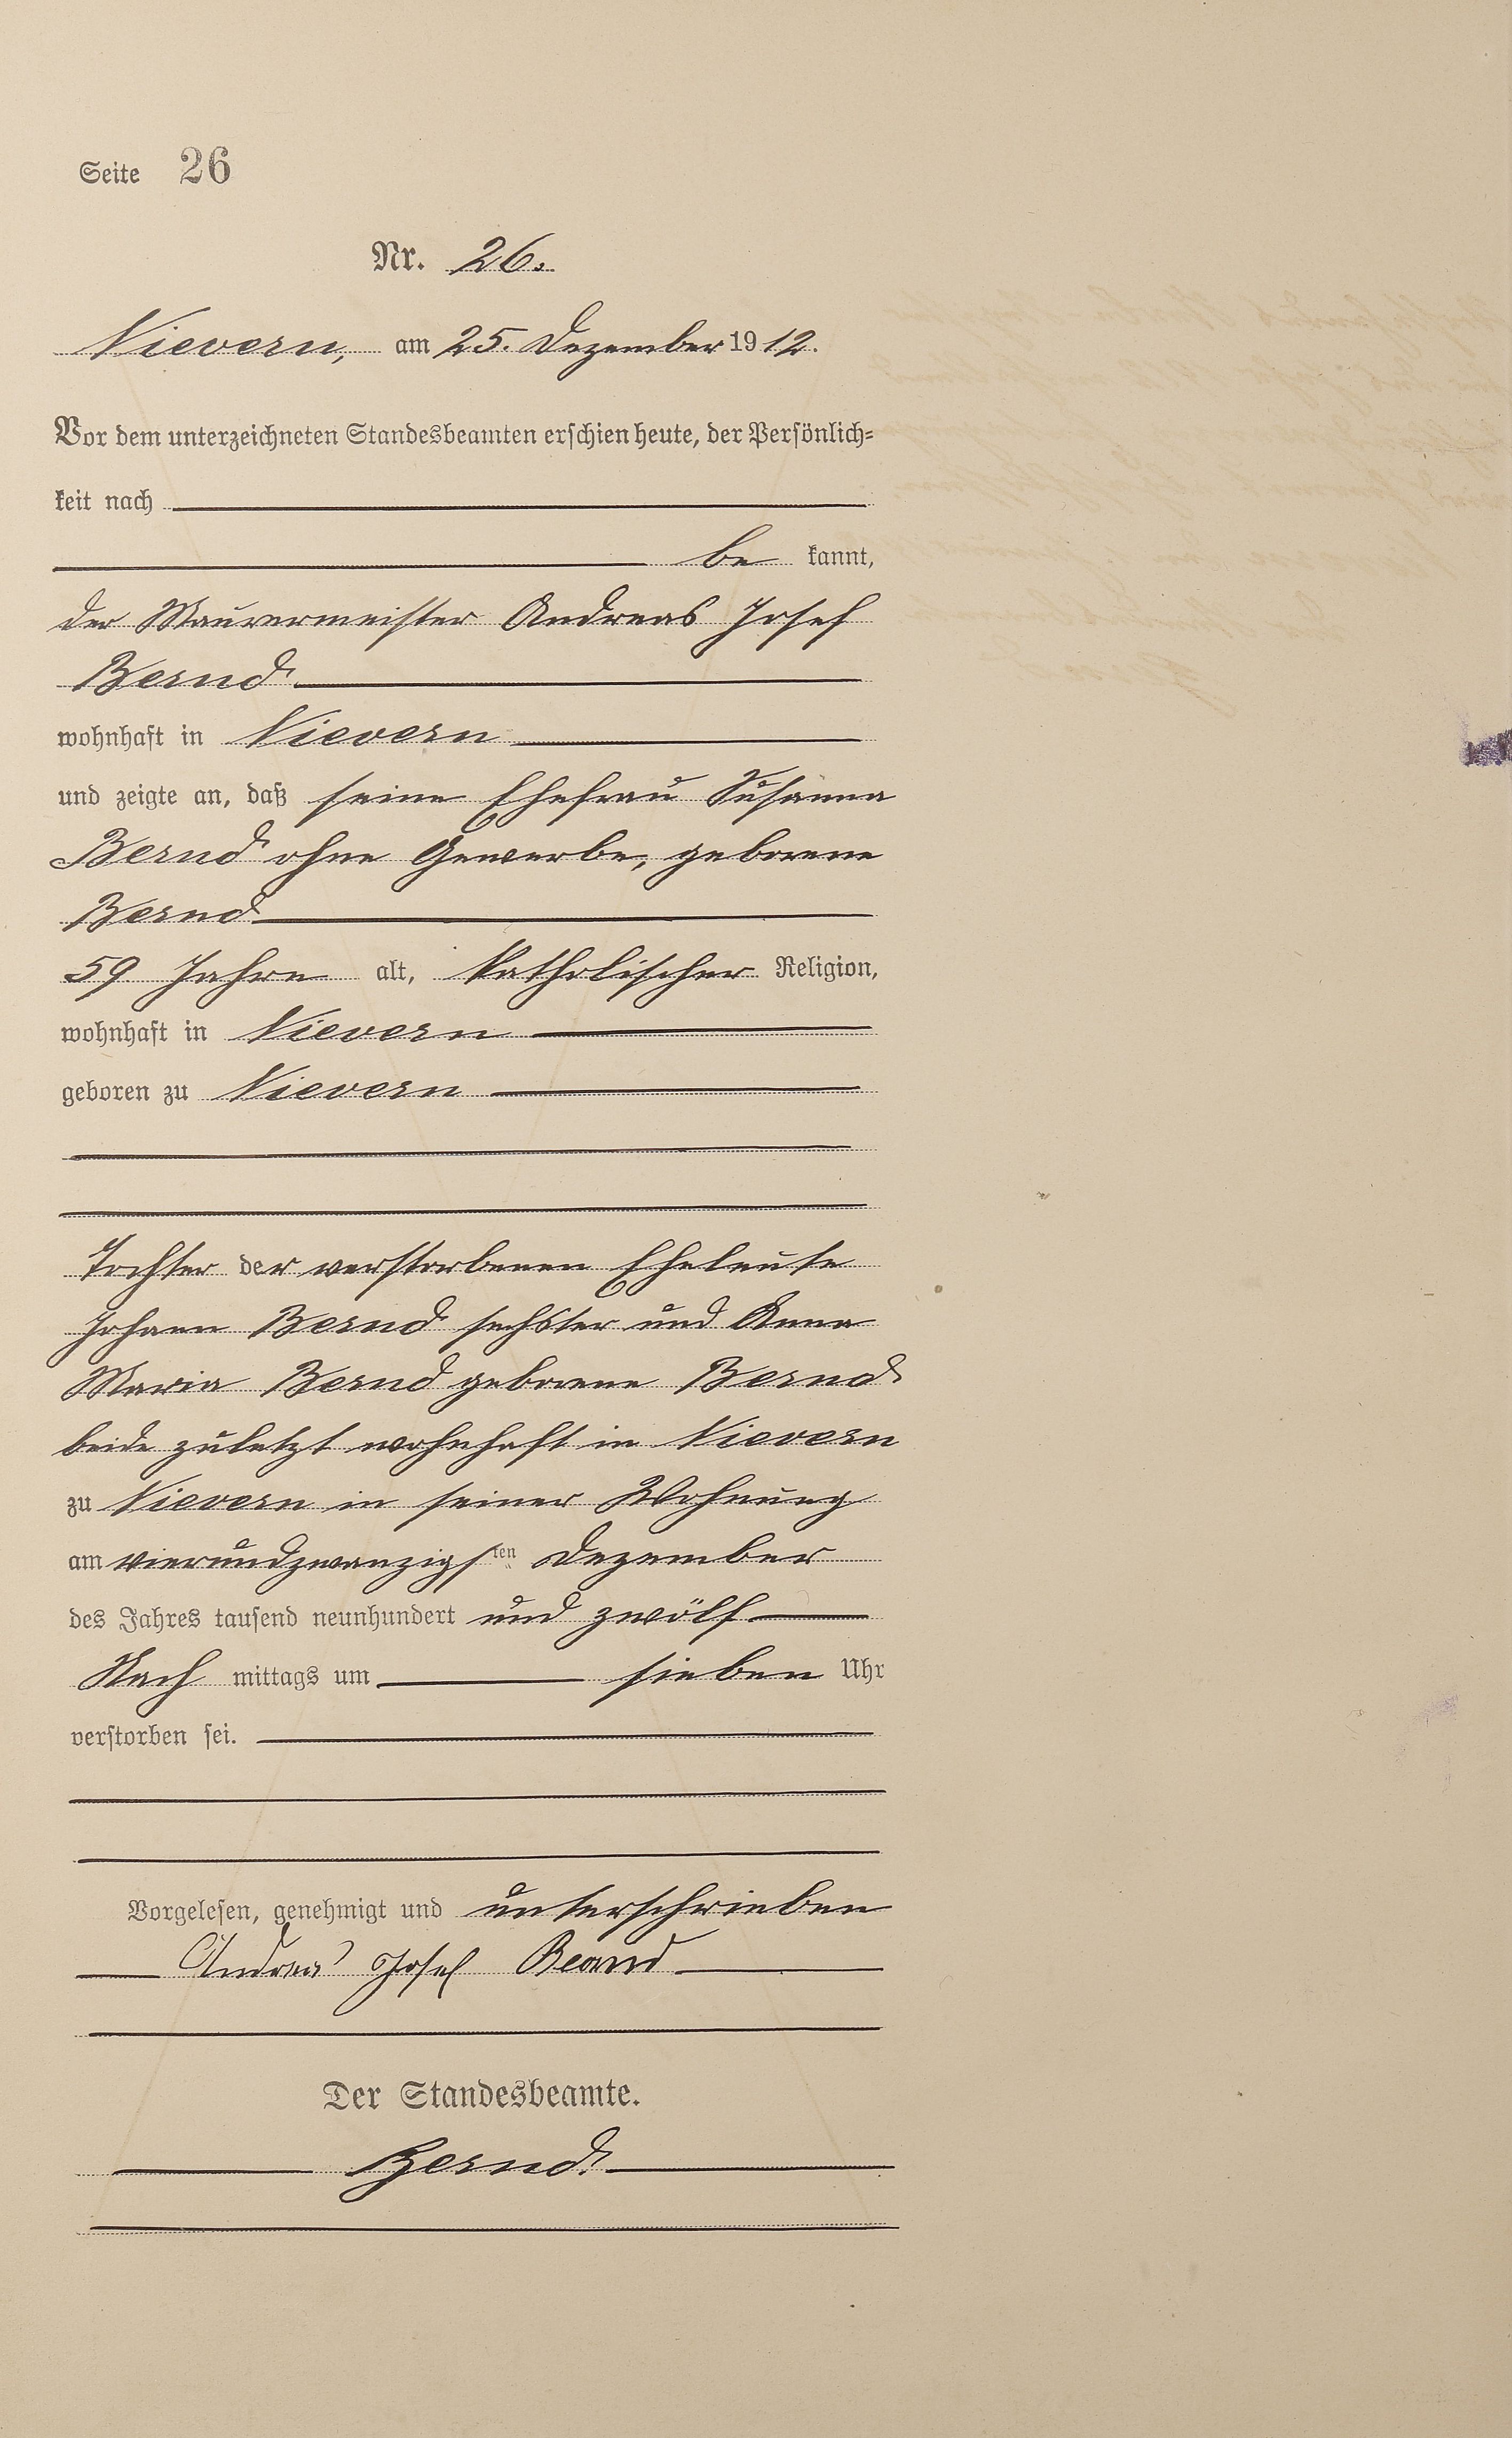 Seite 26
Nr. 26.
Nievern, am 25. Dezember 1912.
Vor dem unterzeichneten Standesbeamten erschien heute, der Persönlich-
keit nach
be kannt,
der Maurermeister Andreas Josef
Bernd
wohnhaft in Nievern
und zeigte an, daß seine Ehefrau Susanna
Bernd ohne Gewerbe, geborene
Bernd
59 Jahre alt, katholischer Religion,
wohnhaft in Nievern
geboren zu Nievern
Tochter der verstorbenen Eheleute
Johann Bernd sechster und Anna
Maria Bernd geborene Bernd
beide zuletzt wohnhaft in Nievern
zu Nievern in seiner Wohnung
am vierundzwanzigsten Dezember
des Jahres tausend neunhundert und zwölf
Nach mittags um sieben Uhr
verstorben sei.
Vorgelesen, genehmigt und unterschrieben
Andreas Josef Bernd
Der Standesbeamte.
Bernd.